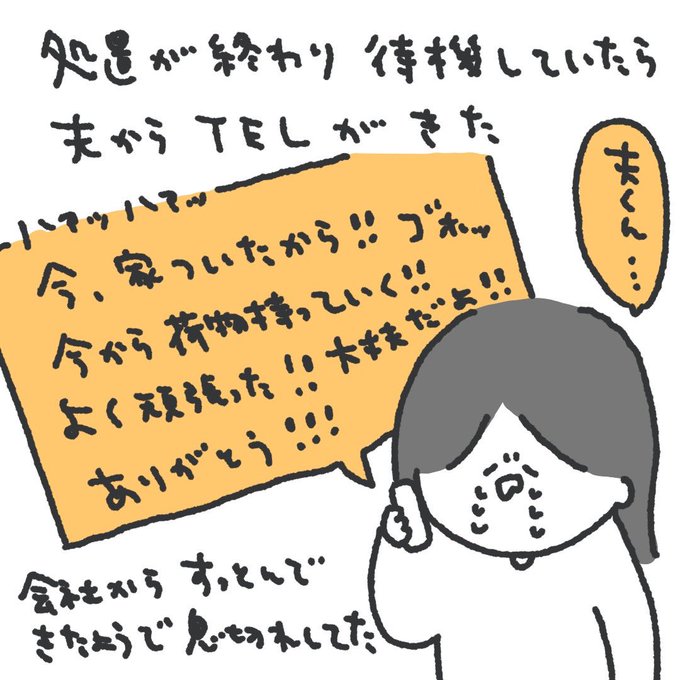 処置が終わり 待機していたら
夫から TELが きた
夫くん…
ハァッハァッ
今、家ついたから!! ゴホッ
今から荷物持っていく!!
よく頑張った!! 大丈夫だよ!!
ありがとう!!!
会社から すっとんで
きたようで 息切れしてた